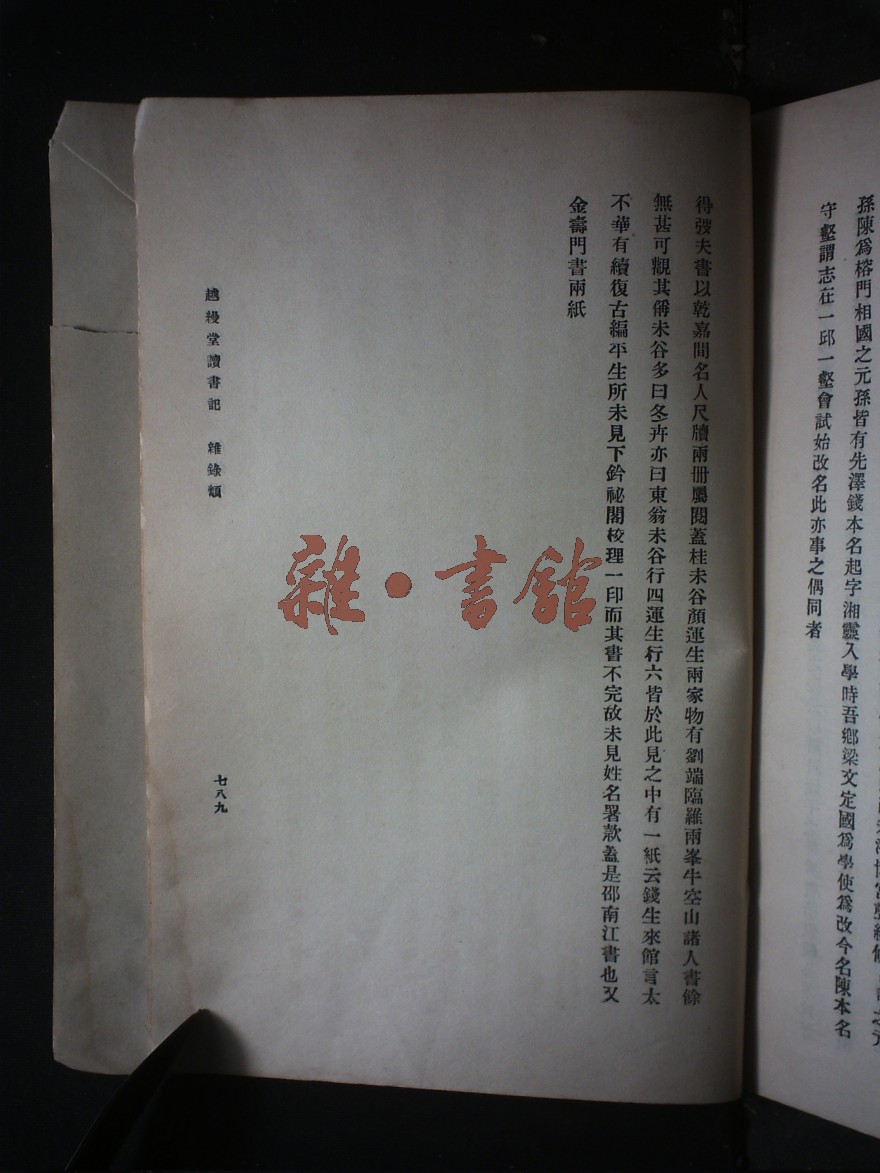 孫陳爲榕門相國之元孫皆有先澤錢本名起字湘靈入學時吾鄉梁文定國爲學使爲改今名陳本名
守壑謂志在一邱一壑會試始改名此亦事之偶同者
得弢夫書以乾嘉間名人尺牘兩册屬閱蓋桂未谷顏運生兩家物有劉端臨羅兩峯牛空山諸人書餘
無甚可觀其稱未谷多曰冬卉亦曰東翁未谷行四運生行六皆於此見之中有一紙云錢生來館言太
不華有續復古編平生所未見下鈐祕閣校理一印而其書不完故未見姓名署款蓋是邵南江書也又
金壽門書兩紙
越縵堂讀書記 雜錄類
七八九
雜·書館